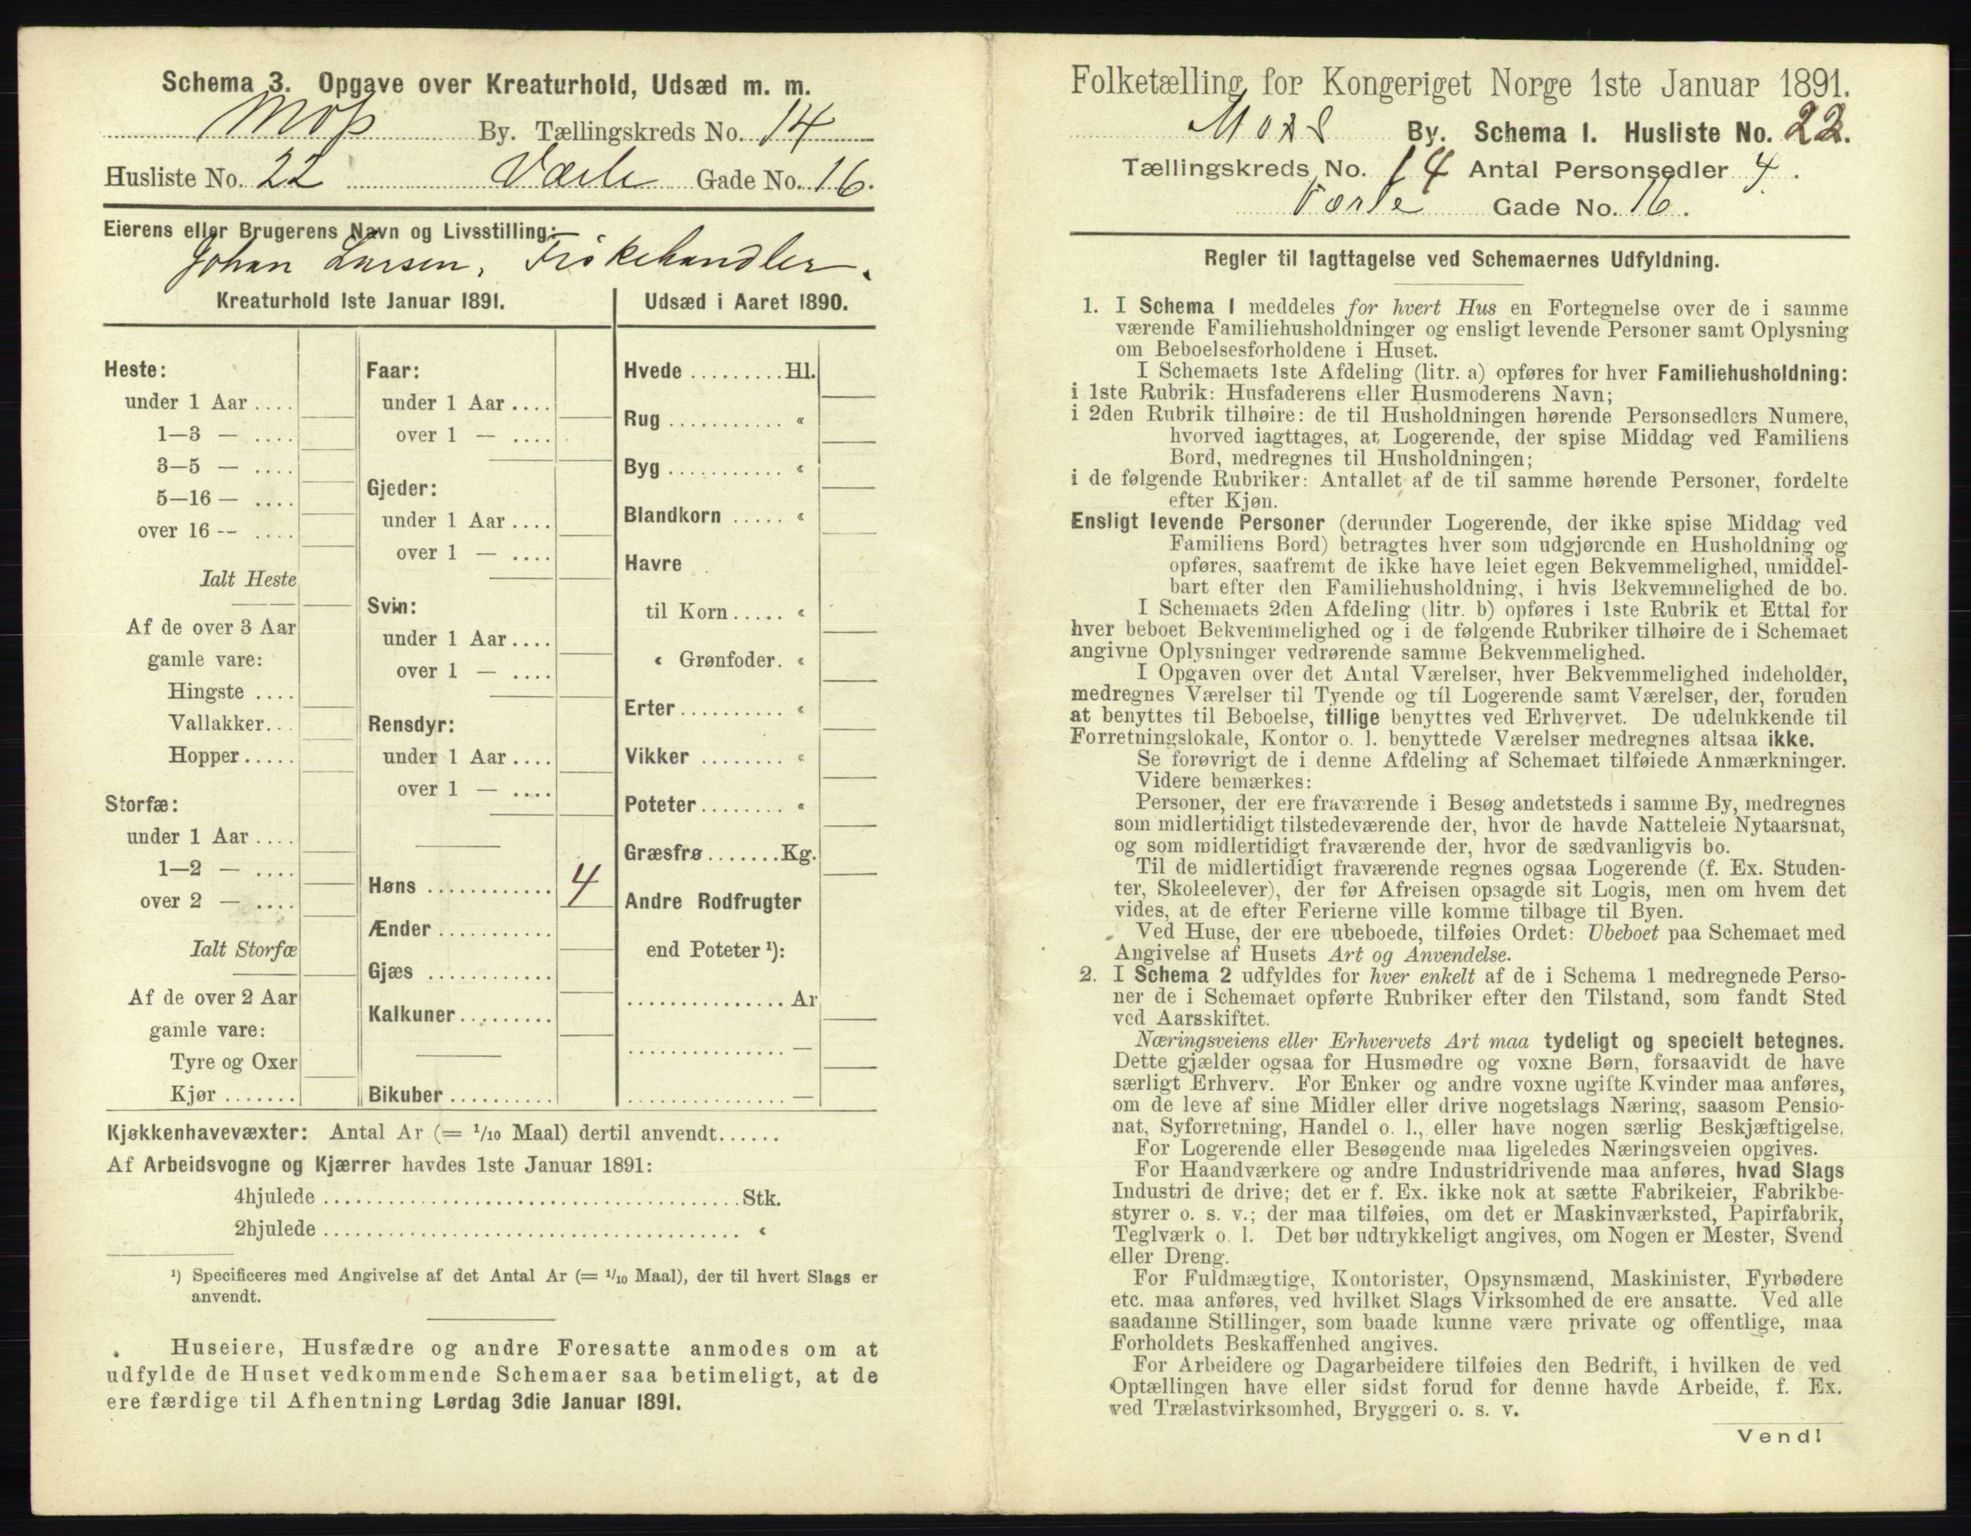 Schema 3. Opgave over Kreaturhold, Udsæd m. m.
Moss By. Tællingskreds No. 14
Husliste No. 22 Værle Gade No. 16.
Eierens eller Brugerens Navn og Livsstilling:
Johan Larsen, Fiskehandler.
Kreaturhold 1ste Januar 1891.
Heste:
under 1 Aar ....
1—3 — ....
3—5 — ....
5—16 — ....
over 16 -- ....
Ialt Heste
Af de over 3 Aar
gamle vare:
Hingste ....
Vallakker...
Hopper.....
Storfæ:
under 1 Aar ....
1—2 — ....
over 2 — ....
Ialt Storfæ
Af de over 2 Aar
gamle vare:
Tyre og Oxer
Kjør .......
Faar:
under 1 Aar ....
over 1 — ....
Gjeder:
under 1 Aar ....
over 1 — ....
Svin:
under 1 Aar ....
over 1 — ....
Rensdyr:
under 1 Aar ....
over 1 — ....
Høns ............ 4
Ænder ...........
Gjæs ............
Kalkuner.........
Bikuber ..........
Udsæd i Aaret 1890.
Hvede .........Hl.
Rug ........... «
Byg ........... «
Blandkorn ..... «
Havre
til Korn ..... «
« Grønfoder. «
Erter.......... «
Vikker ........ «
Poteter........ «
Græsfrø.......Kg.
Andre Rodfrugter
end Poteter ¹):
............... Ar
............... —
............... —
Kjøkkenhavevæxter: Antal Ar (= ¹/₁₀ Maal) dertil anvendt......
Af Arbeidsvogne og Kjærrer havdes 1ste Januar 1891:
4hjulede ........................................Stk.
2hjulede ........................................ «
¹) Specificeres med Angivelse af det Antal Ar (= ¹/₁₀ Maal), der til hvert Slags er
anvendt.
Huseiere, Husfædre og andre Foresatte anmodes om at
udfylde de Huset vedkommende Schemaer saa betimeligt, at de
ere færdige til Afhentning Lørdag 3die Januar 1891.
Folketælling for Kongeriget Norge 1ste Januar 1891.
Moss By. Schema I. Husliste No. 22.
Tællingskreds No. 14 Antal Personsedler 4.
Værle Gade No. 16.
Regler til Iagttagelse ved Schemaernes Udfyldning.
1. I Schema 1 meddeles for hvert Hus en Fortegnelse over de i samme
værende Familiehusholdninger og ensligt levende Personer samt Oplysning
om Beboelsesforholdene i Huset.
I Schemaets 1ste Afdeling (litr. a) opføres for hver Familiehusholdning:
i 1ste Rubrik: Husfaderens eller Husmoderens Navn;
i 2den Rubrik tilhøire: de til Husholdningen hørende Personsedlers Numere,
hvorved iagttages, at Logerende, der spise Middag ved Familiens
Bord, medregnes til Husholdningen;
i de følgende Rubriker: Antallet af de til samme hørende Personer, fordelte
efter Kjøn.
Ensligt levende Personer (derunder Logerende, der ikke spise Middag ved
Familiens Bord) betragtes hver som udgjørende en Husholdning og
opføres, saafremt de ikke have leiet egen Bekvemmelighed, umiddel-
bart efter den Familiehusholdning, i hvis Bekvemmelighed de bo.
I Schemaets 2den Afdeling (litr. b) opføres i 1ste Rubrik et Ettal for
hver beboet Bekvemmelighed og i de følgende Rubriker tilhøire de i Schemaet
angivne Oplysninger vedrørende samme Bekvemmelighed.
I Opgaven over det Antal Værelser, hver Bekvemmelighed indeholder,
medregnes Værelser til Tyende og til Logerende samt Værelser, der, foruden
at benyttes til Beboelse, tillige benyttes ved Erhvervet. De udelukkende til
Forretningslokale, Kontor o. l. benyttede Værelser medregnes altsaa ikke.
Se forøvrigt de i denne Afdeling af Schemaet tilføiede Anmærkninger.
Videre bemærkes:
Personer, der ere fraværende i Besøg andetsteds i samme By, medregnes
som midlertidigt tilstedeværende der, hvor de havde Natteleie Nytaarsnat,
og som midlertidigt fraværende der, hvor de sædvanligvis bo.
Til de midlertidigt fraværende regnes ogsaa Logerende (f. Ex. Studen-
ter, Skoleelever), der før Afreisen opsagde sit Logis, men om hvem det
vides, at de efter Ferierne ville komme tilbage til Byen.
Ved Huse, der ere ubeboede, tilføies Ordet: Ubeboet paa Schemaet med
Angivelse af Husets Art og Anvendelse.
2. I Schema 2 udfyldes for hver enkelt af de i Schema 1 medregnede Perso-
ner de i Schemaet opførte Rubriker efter den Tilstand, som fandt Sted
ved Aarsskiftet.
Næringsveiens eller Erhvervets Art maa tydeligt og specielt betegnes.
Dette gjælder ogsaa for Husmødre og voxne Børn, forsaavidt de have
særligt Erhverv. For Enker og andre voxne ugifte Kvinder maa anføres,
om de leve af sine Midler eller drive nogetslags Næring, saasom Pensio-
nat, Syforretning, Handel o. l., eller have nogen særlig Beskjæftigelse.
For Logerende eller Besøgende maa ligeledes Næringsveien opgives.
For Haandværkere og andre Industridrivende maa anføres, hvad Slags
Industri de drive; det er f. Ex. ikke nok at sætte Fabrikeier, Fabrikbe-
styrer o. s. v.; der maa tilføies, om det er Maskinværksted, Papirfabrik,
Teglværk o. l. Det bør udtrykkeligt angives, om Nogen er Mester, Svend
eller Dreng.
For Fuldmægtige, Kontorister, Opsynsmænd, Maskinister, Fyrbødere
etc. maa anføres, ved hvilket Slags Virksomhed de ere ansatte. Ved alle
saadanne Stillinger, som baade kunne være private og offentlige, maa
Forholdets Beskaffenhed angives.
For Arbeidere og Dagarbeidere tilføies den Bedrift, i hvilken de ved
Optællingen have eller sidst forud for denne havde Arbeide, f. Ex.
ved Trælastvirksomhed, Bryggeri o. s. v.
Vend!